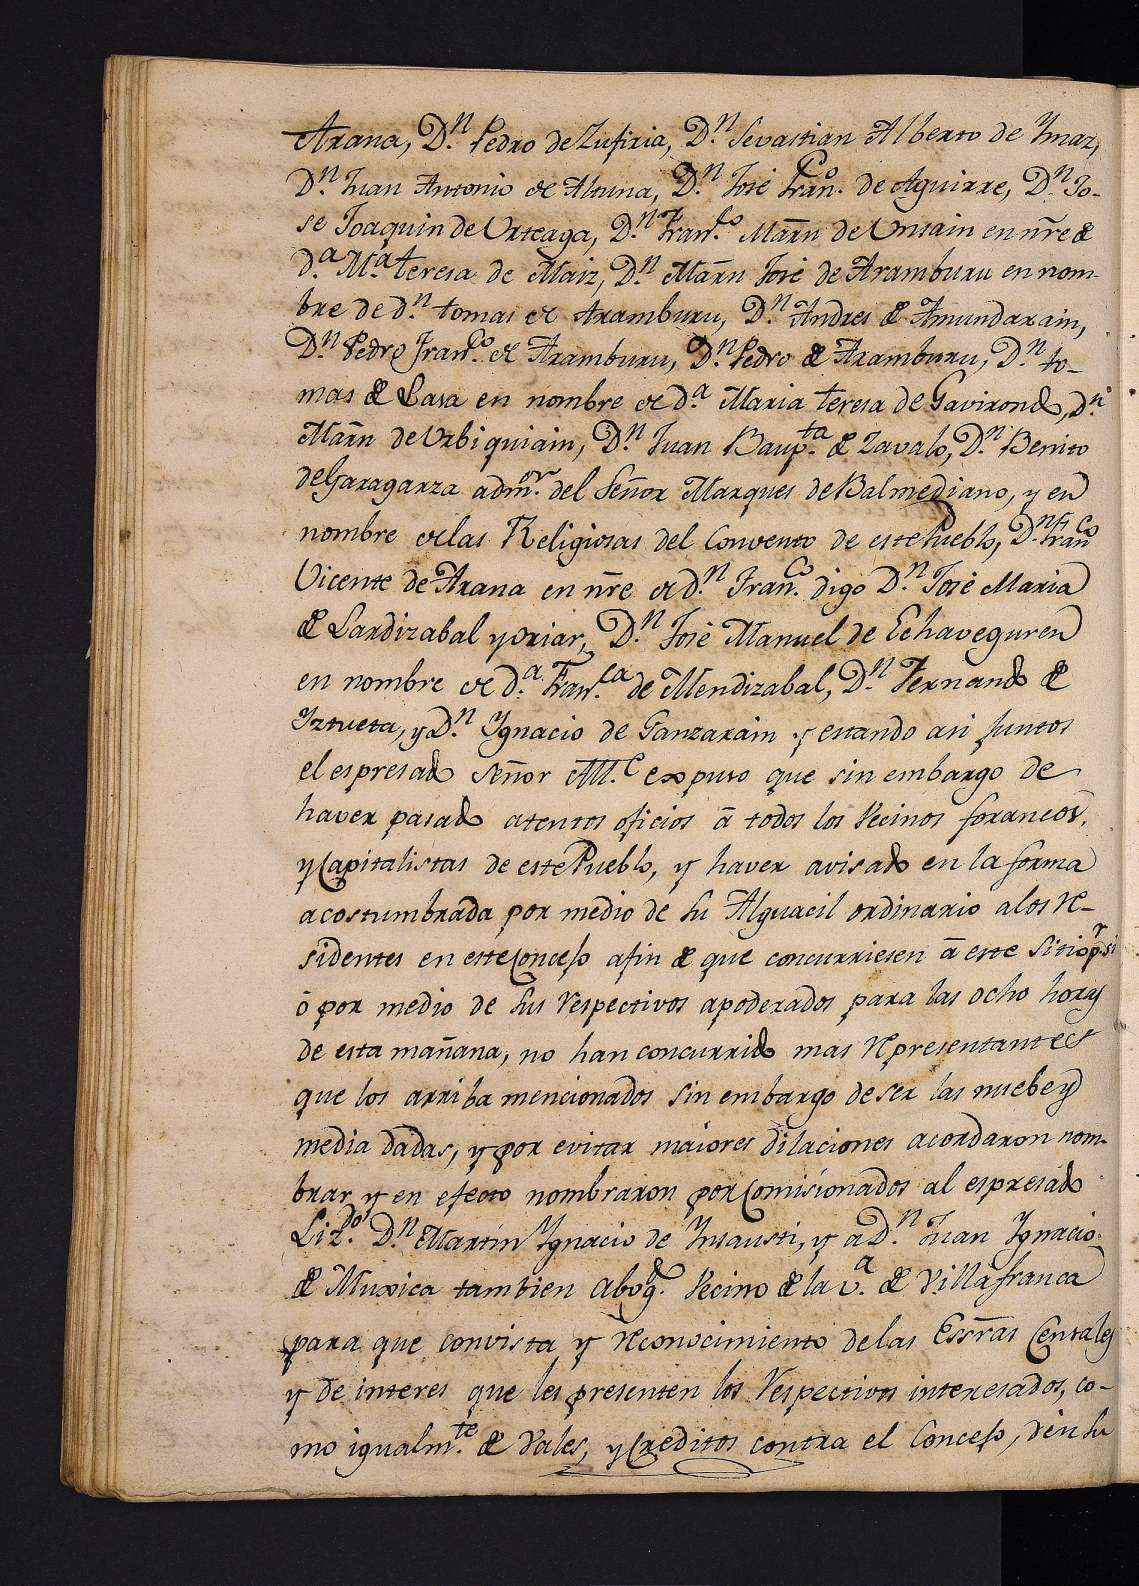 Arana, D.n Pedro de Zufiria, D.n Sevastian Alberto de Ymaz,
D.n Juan Antonio de Altuna, D.n José Fran.co de Aguirre, D.n Jo-
se Joaquin de Urteaga, D.n Fran.co Marñ de Unsain en nr̃e de
d.a M.a teresa de Maiz, D.n Marñ José de Aramburu en nom-
bre de d.n tomas de Aramburu, D.n Andres de Amundarain,
D.n Pedro Fran.co de Aramburu, D.n Pedro de Aramburu, D.n to-
mas de Lasa en nombre de d.a Maria teresa de Gavirondo, D.n
Marñ de Urbiquiain, D.n Juan Baup.ta de Zavalo, D.n Benito
de Garagarza adm.or del Señor Marques de Balmediano, y en
nombre de las Religiosas del Convento de este Pueblo, D.n Fran.co
Vicente de Arana en nr̃e de d.n Fran.co digo D.n José Maria
de Lardizabal y oriar, D.n José Manuel de Echaveguren
en nombre de d.a Fran.ca de Mendizabal, D.n Fernando de
Yztueta, y D.n Ygnacio de Ganzarain y estando asi juntos
el espresado Señor All.e expuso que sin embargo de
haver pasado atentos oficios á todos los Vecinos foraneos,
y Capitalistas de este Pueblo, y haver avisado en la forma
acostumbrada por medio de su Alguacil ordinario a los re-
sidentes en este Concejo afin de que concurriesen á este Sitio p.r si
ó por medio de sus respectivos apoderados para las ocho horas
de esta mañana, no han concurrido mas representantes
que los arriba mencionados sin embargo de ser las nuebe y
media dadas, y por evitar maiores dilaciones acordaron nom-
brar y en efecto nombraron por Comisionados al espresado
Liz.do D.n Martin Ygnacio de Ynsausti, y a D.n Juan Ygnacio
de Muxica tambien Abog.do Vecino de la v.a de Villafranca
para que con vista y reconocimiento de las Essr̃as Censales
y de interes que les presenten los respectivos interesados, co-
mo igualm.te de Vales, y Creditos contra el Concejo, den su